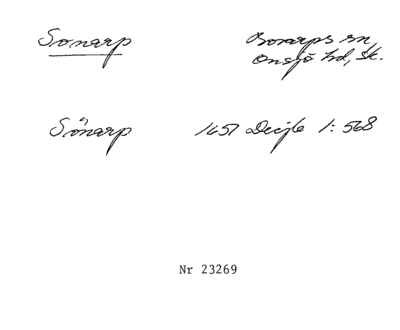 Sonarp
Bonarps sn,
Onsjö hd, Sk.
Sönarp 1651 Decjb 1:568
Nr 23269